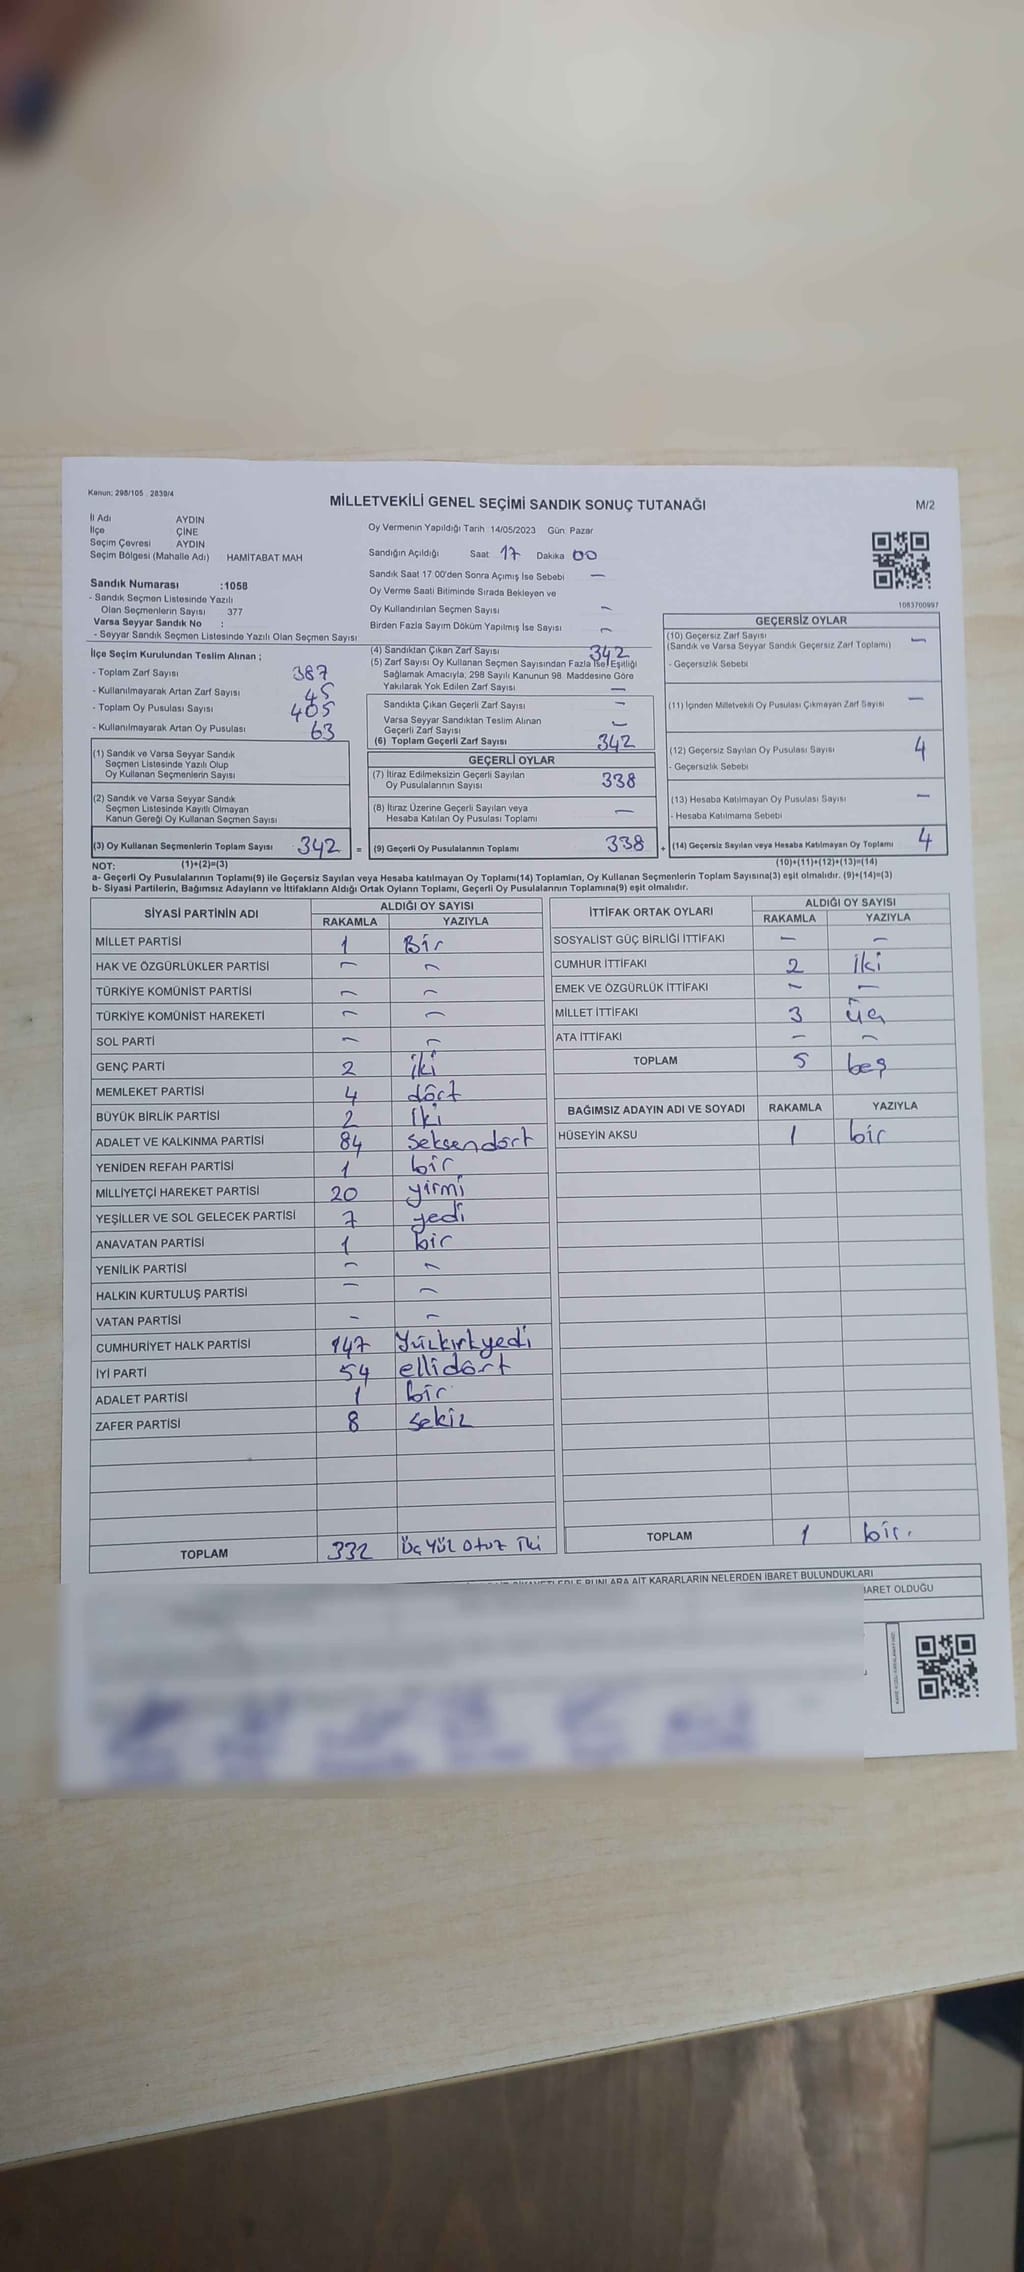 Kanun: 298/105 . 2839/4
MİLLETVEKİLİ GENEL SEÇİMİ SANDIK SONUÇ TUTANAĞI
M/2
İl Adı AYDIN
İlçe ÇİNE
Seçim Çevresi AYDIN
Seçim Bölgesi (Mahalle Adı) HAMİTABAT MAH
Sandık Numarası :1058
- Sandık Seçmen Listesinde Yazılı
Olan Seçmenlerin Sayısı 377
Varsa Seyyar Sandık No :
- Seyyar Sandık Seçmen Listesinde Yazılı Olan Seçmen Sayısı
İlçe Seçim Kurulundan Teslim Alınan ;
- Toplam Zarf Sayısı 387
- Kullanılmayarak Artan Zarf Sayısı 45
- Toplam Oy Pusulası Sayısı 405
- Kullanılmayarak Artan Oy Pusulası 63
(1) Sandık ve Varsa Seyyar Sandık
Seçmen Listesinde Yazılı Olup
Oy Kullanan Seçmenlerin Sayısı
(2) Sandık ve Varsa Seyyar Sandık
Seçmen Listesinde Kayıtlı Olmayan
Kanun Gereği Oy Kullanan Seçmen Sayısı
(3) Oy Kullanan Seçmenlerin Toplam Sayısı 342 =
Oy Vermenin Yapıldığı Tarih 14/05/2023 Gün Pazar
Sandığın Açıldığı Saat 17 Dakika 00
Sandık Saat 17 00'den Sonra Açımış İse Sebebi —
Oy Verme Saati Bitiminde Sırada Bekleyen ve
Oy Kullandırılan Seçmen Sayısı —
Birden Fazla Sayım Döküm Yapılmış İse Sayısı —
(4) Sandıktan Çıkan Zarf Sayısı 342
(5) Zarf Sayısı Oy Kullanan Seçmen Sayısından Fazla İse, Eşitliği
Sağlamak Amacıyla, 298 Sayılı Kanunun 98. Maddesine Göre
Yakılarak Yok Edilen Zarf Sayısı —
Sandıkta Çıkan Geçerli Zarf Sayısı —
Varsa Seyyar Sandıktan Teslim Alınan
Geçerli Zarf Sayısı —
(6) Toplam Geçerli Zarf Sayısı 342
GEÇERLİ OYLAR
(7) İtiraz Edilmeksizin Geçerli Sayılan
Oy Pusulalarının Sayısı 338
(8) İtiraz Üzerine Geçerli Sayılan veya
Hesaba Katılan Oy Pusulası Toplamı —
(9) Geçerli Oy Pusulalarının Toplamı 338 +
1083700997
GEÇERSİZ OYLAR
(10) Geçersiz Zarf Sayısı —
(Sandık ve Varsa Seyyar Sandık Geçersiz Zarf Toplamı)
- Geçersizlik Sebebi
(11) İçinden Milletvekili Oy Pusulası Çıkmayan Zarf Sayısı —
(12) Geçersiz Sayılan Oy Pusulası Sayısı 4
- Geçersizlik Sebebi
(13) Hesaba Katılmayan Oy Pusulası Sayısı —
- Hesaba Katılmama Sebebi
(14) Geçersiz Sayılan veya Hesaba Katılmayan Oy Toplamı 4
NOT: (1)+(2)=(3) (10)+(11)+(12)+(13)=(14)
a- Geçerli Oy Pusulalarının Toplamı(9) ile Geçersiz Sayılan veya Hesaba katılmayan Oy Toplamı(14) Toplamları, Oy Kullanan Seçmenlerin Toplam Sayısına(3) eşit olmalıdır. (9)+(14)=(3)
b- Siyasi Partilerin, Bağımsız Adayların ve İttifakların Aldığı Ortak Oyların Toplamı, Geçerli Oy Pusulalarının Toplamına(9) eşit olmalıdır.
SİYASİ PARTİNİN ADI ALDIĞI OY SAYISI
RAKAMLA YAZIYLA
MİLLET PARTİSİ 1 Bir
HAK VE ÖZGÜRLÜKLER PARTİSİ — —
TÜRKİYE KOMÜNİST PARTİSİ — —
TÜRKİYE KOMÜNİST HAREKETİ — —
SOL PARTİ — —
GENÇ PARTİ 2 iki
MEMLEKET PARTİSİ 4 dört
BÜYÜK BİRLİK PARTİSİ 2 iki
ADALET VE KALKINMA PARTİSİ 84 seksendört
YENİDEN REFAH PARTİSİ 1 bir
MİLLİYETÇİ HAREKET PARTİSİ 20 yirmi
YEŞİLLER VE SOL GELECEK PARTİSİ 7 yedi
ANAVATAN PARTİSİ 1 bir
YENİLİK PARTİSİ — —
HALKIN KURTULUŞ PARTİSİ — —
VATAN PARTİSİ — —
CUMHURİYET HALK PARTİSİ 147 Yüzkırkyedi
İYİ PARTİ 54 ellidört
ADALET PARTİSİ 1 bir
ZAFER PARTİSİ 8 sekiz
TOPLAM 332 üç yüz otuz iki
İTTİFAK ORTAK OYLARI ALDIĞI OY SAYISI
RAKAMLA YAZIYLA
SOSYALİST GÜÇ BİRLİĞİ İTTİFAKI — —
CUMHUR İTTİFAKI 2 iki
EMEK VE ÖZGÜRLÜK İTTİFAKI — —
MİLLET İTTİFAKI 3 üç
ATA İTTİFAKI — —
TOPLAM 5 beş
BAĞIMSIZ ADAYIN ADI VE SOYADI RAKAMLA YAZIYLA
HÜSEYİN AKSU 1 bir
TOPLAM 1 bir.
BUNLARA AİT KARARLARIN NELERDEN İBARET BULUNDUKLARI
İBARET OLDUĞU